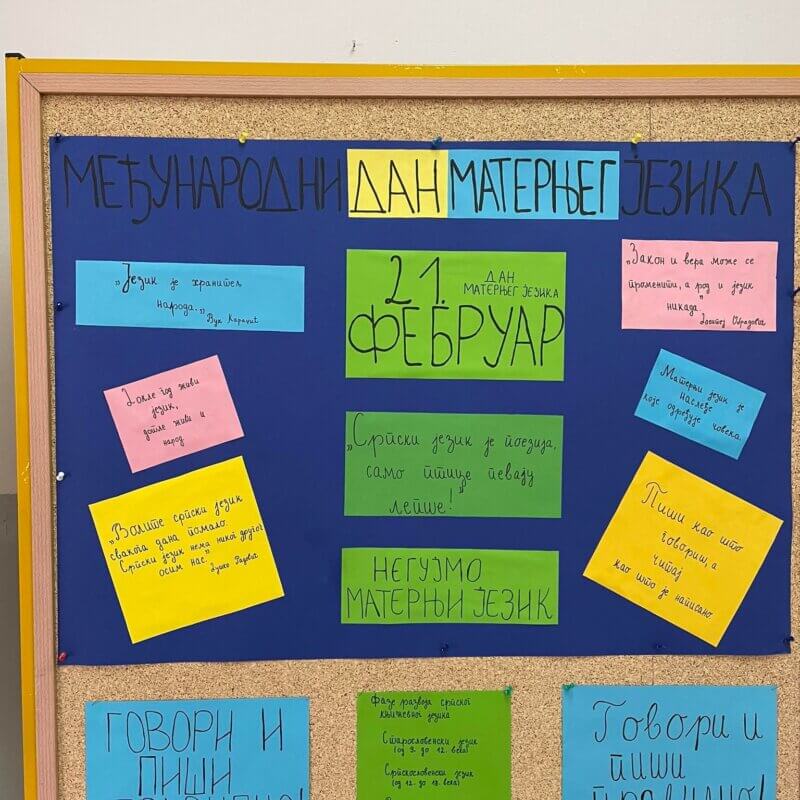 МЕЂУНАРОДНИ ДАН МАТЕРЊЕГ ЈЕЗИКА
„Језик је хранитељ
народа.„
Вук Караџић
21. ДАН
МАТЕРЊЕГ ЈЕЗИКА
ФЕБРУАР
„Закон и вера може се
променити, а род и језик
никада."
Доситеј Обрадовић
Докле год живи
језик,
дотле живи и
народ
„Српски језик је поезија,
само птице певају
лепше!"
Матерњи језик је
наслеђе
које одређује човека.
„Волите српски језик
свакога дана помало.
Српски језик нема никог другог
осим нас."
Душко Радовић
НЕГУЈМО
МАТЕРЊИ ЈЕЗИК
Пиши као што
говориш, а
читај
као што је написано.
ГОВОРИ И
ПИШИ
Фазе развоја српског
књижевног језика
Старословенски језик
(од 9. до 12. века)
Српскословенски језик
(од 12. до 18. века)
Говори и
пиши
правилно!